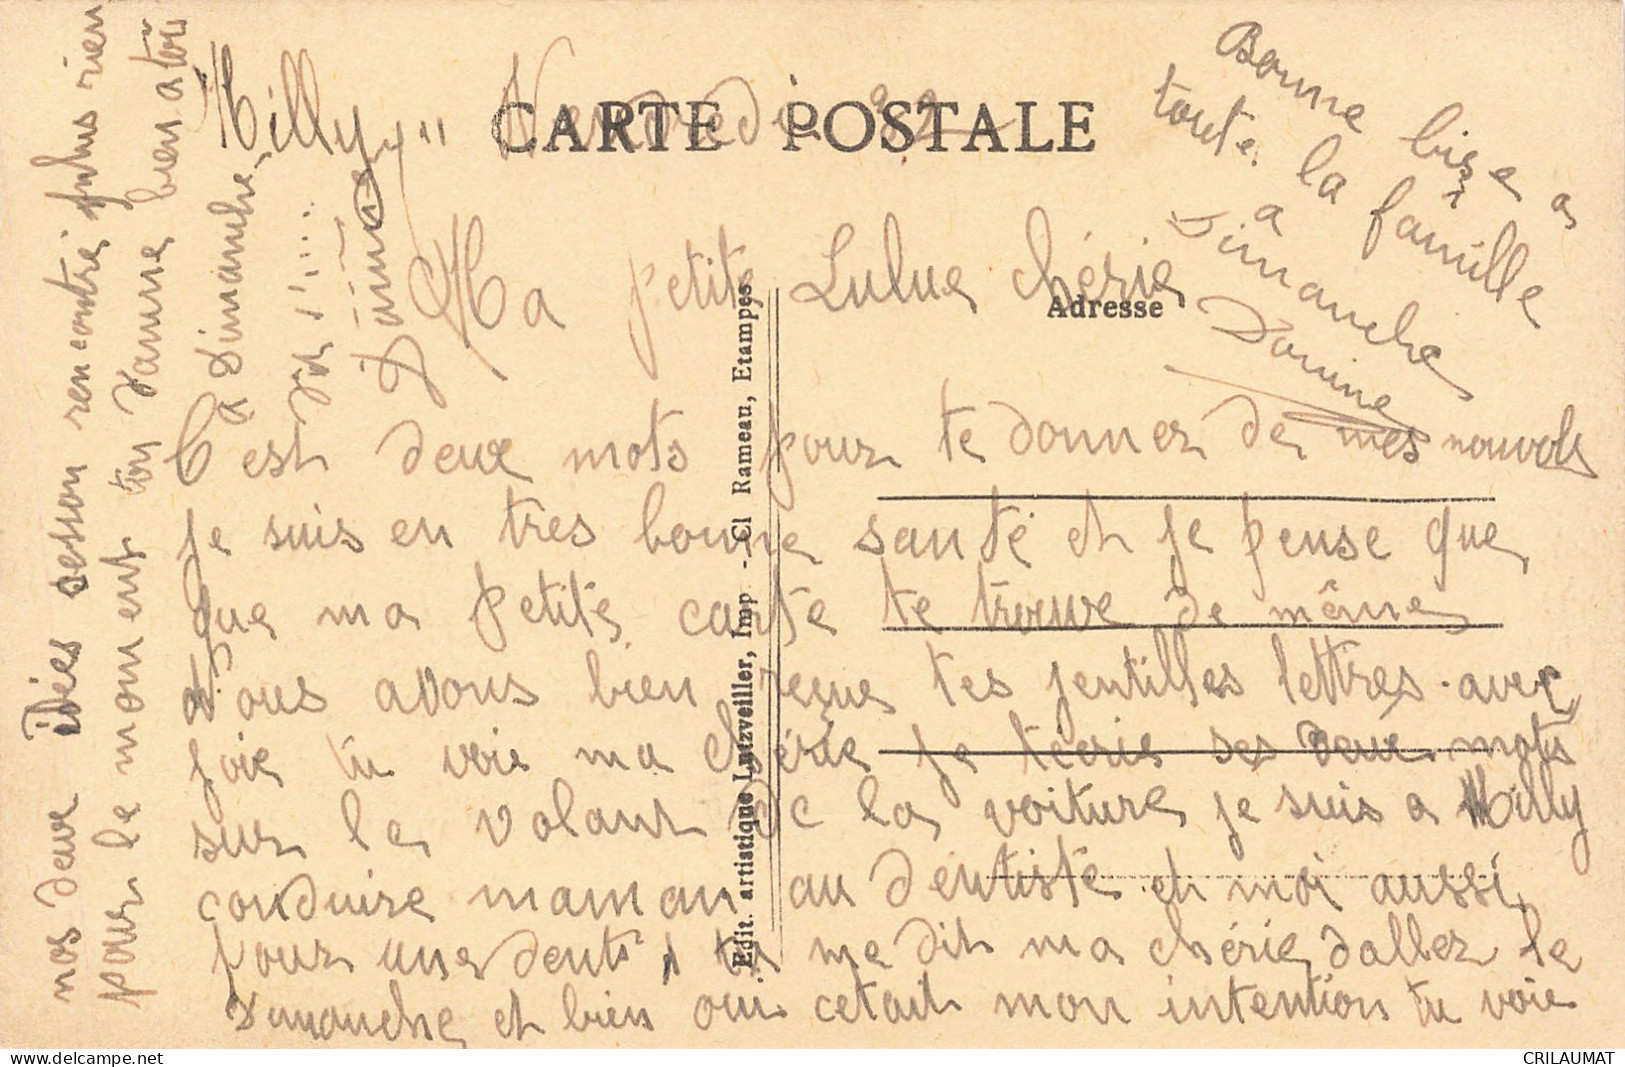 "Milly" Vendredi
CARTE POSTALE
Ma petite Lulue chérie
Adresse
C'est deux mots pour te donner de mes nouvels
je suis en tres bonne santé et je pense que
que ma petite carte te trouve de même
Nous avons bien reçue tes jentilles lettres avec
joie tu voie ma chérie je técrie ses deux mots
sur le volant de la voiture je suis a Milly
conduire maman au dentiste et moi aussi
pour une dent, tu me dit ma chérie daller le
Dimanche et bien oui cetait mon intention tu voie
nos deux idées se son rencontré plus rien
pour le moment ton Janine bien a toi
a Dimanche
Janine
Bonne bise a
toute la famille
a
Dimanche
Janine
Edit. artistique Lutzveiller, Imp - Cl Rameau, Etampes
CRILAUMAT
les idées de mes clients sur delcampe.net